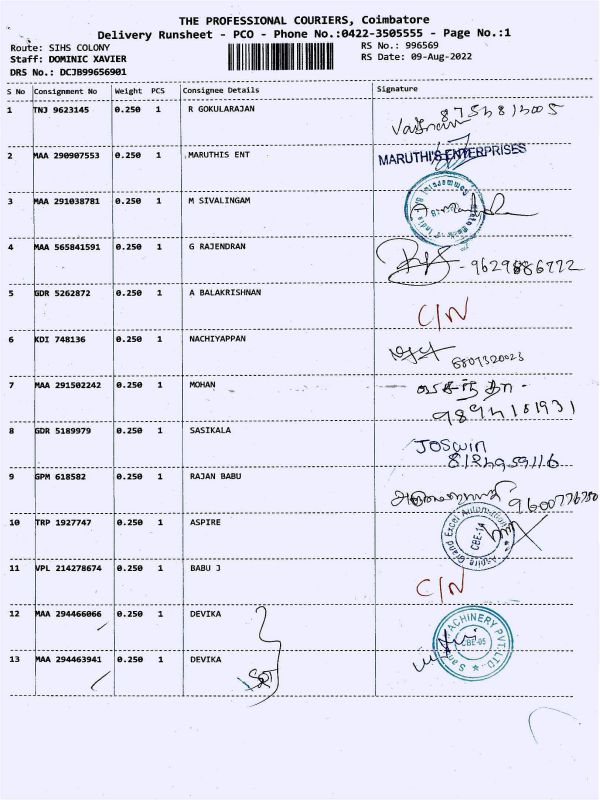 THE PROFESSIONAL COURIERS, Coimbatore
Delivery Runsheet - PCO - Phone No.:0422-3505555 - Page No.:1
Route: SIHS COLONY
RS No.: 996569
Staff: DOMINIC XAVIER
RS Date: 09-Aug-2022
DRS No.: DCJB99656901
S No Consignment No Weight PCS Consignee Details Signature
1 TNJ 9623145 0.250 1 R GOKULARAJAN
2 MAA 290907553 0.250 1 MARUTHIS ENT MARUTHI'S ENTERPRISES
3 MAA 291038781 0.250 1 M SIVALINGAM
4 MAA 565841591 0.250 1 G RAJENDRAN
5 GDR 5262872 0.250 1 A BALAKRISHNAN C/N
6 KDI 748136 0.250 1 NACHIYAPPAN
7 MAA 291502242 0.250 1 MOHAN வசந்தா -
8 GDR 5189979 0.250 1 SASIKALA JOSWIN
9 GPM 618582 0.250 1 RAJAN BABU
10 TRP 1927747 0.250 1 ASPIRE Aspire Grand Excel Automation CBE-14
11 VPL 214278674 0.250 1 BABU J C/N
12 MAA 294466066 0.250 1 DEVIKA MACHINERY PVT. LTD. CBE-05
13 MAA 294463941 0.250 1 DEVIKA